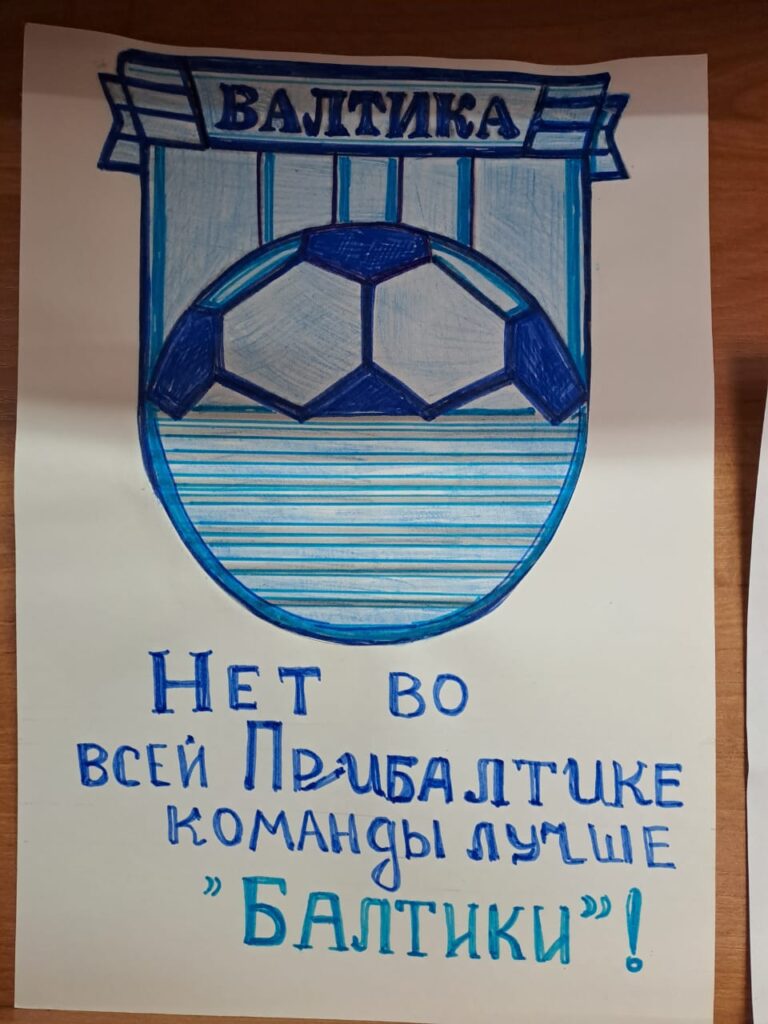 ВАЛТИКА
НЕТ ВО
ВСЕЙ ПРИБАЛТИКЕ
КОМАНДЫ ЛУЧШЕ
"БАЛТИКИ"!